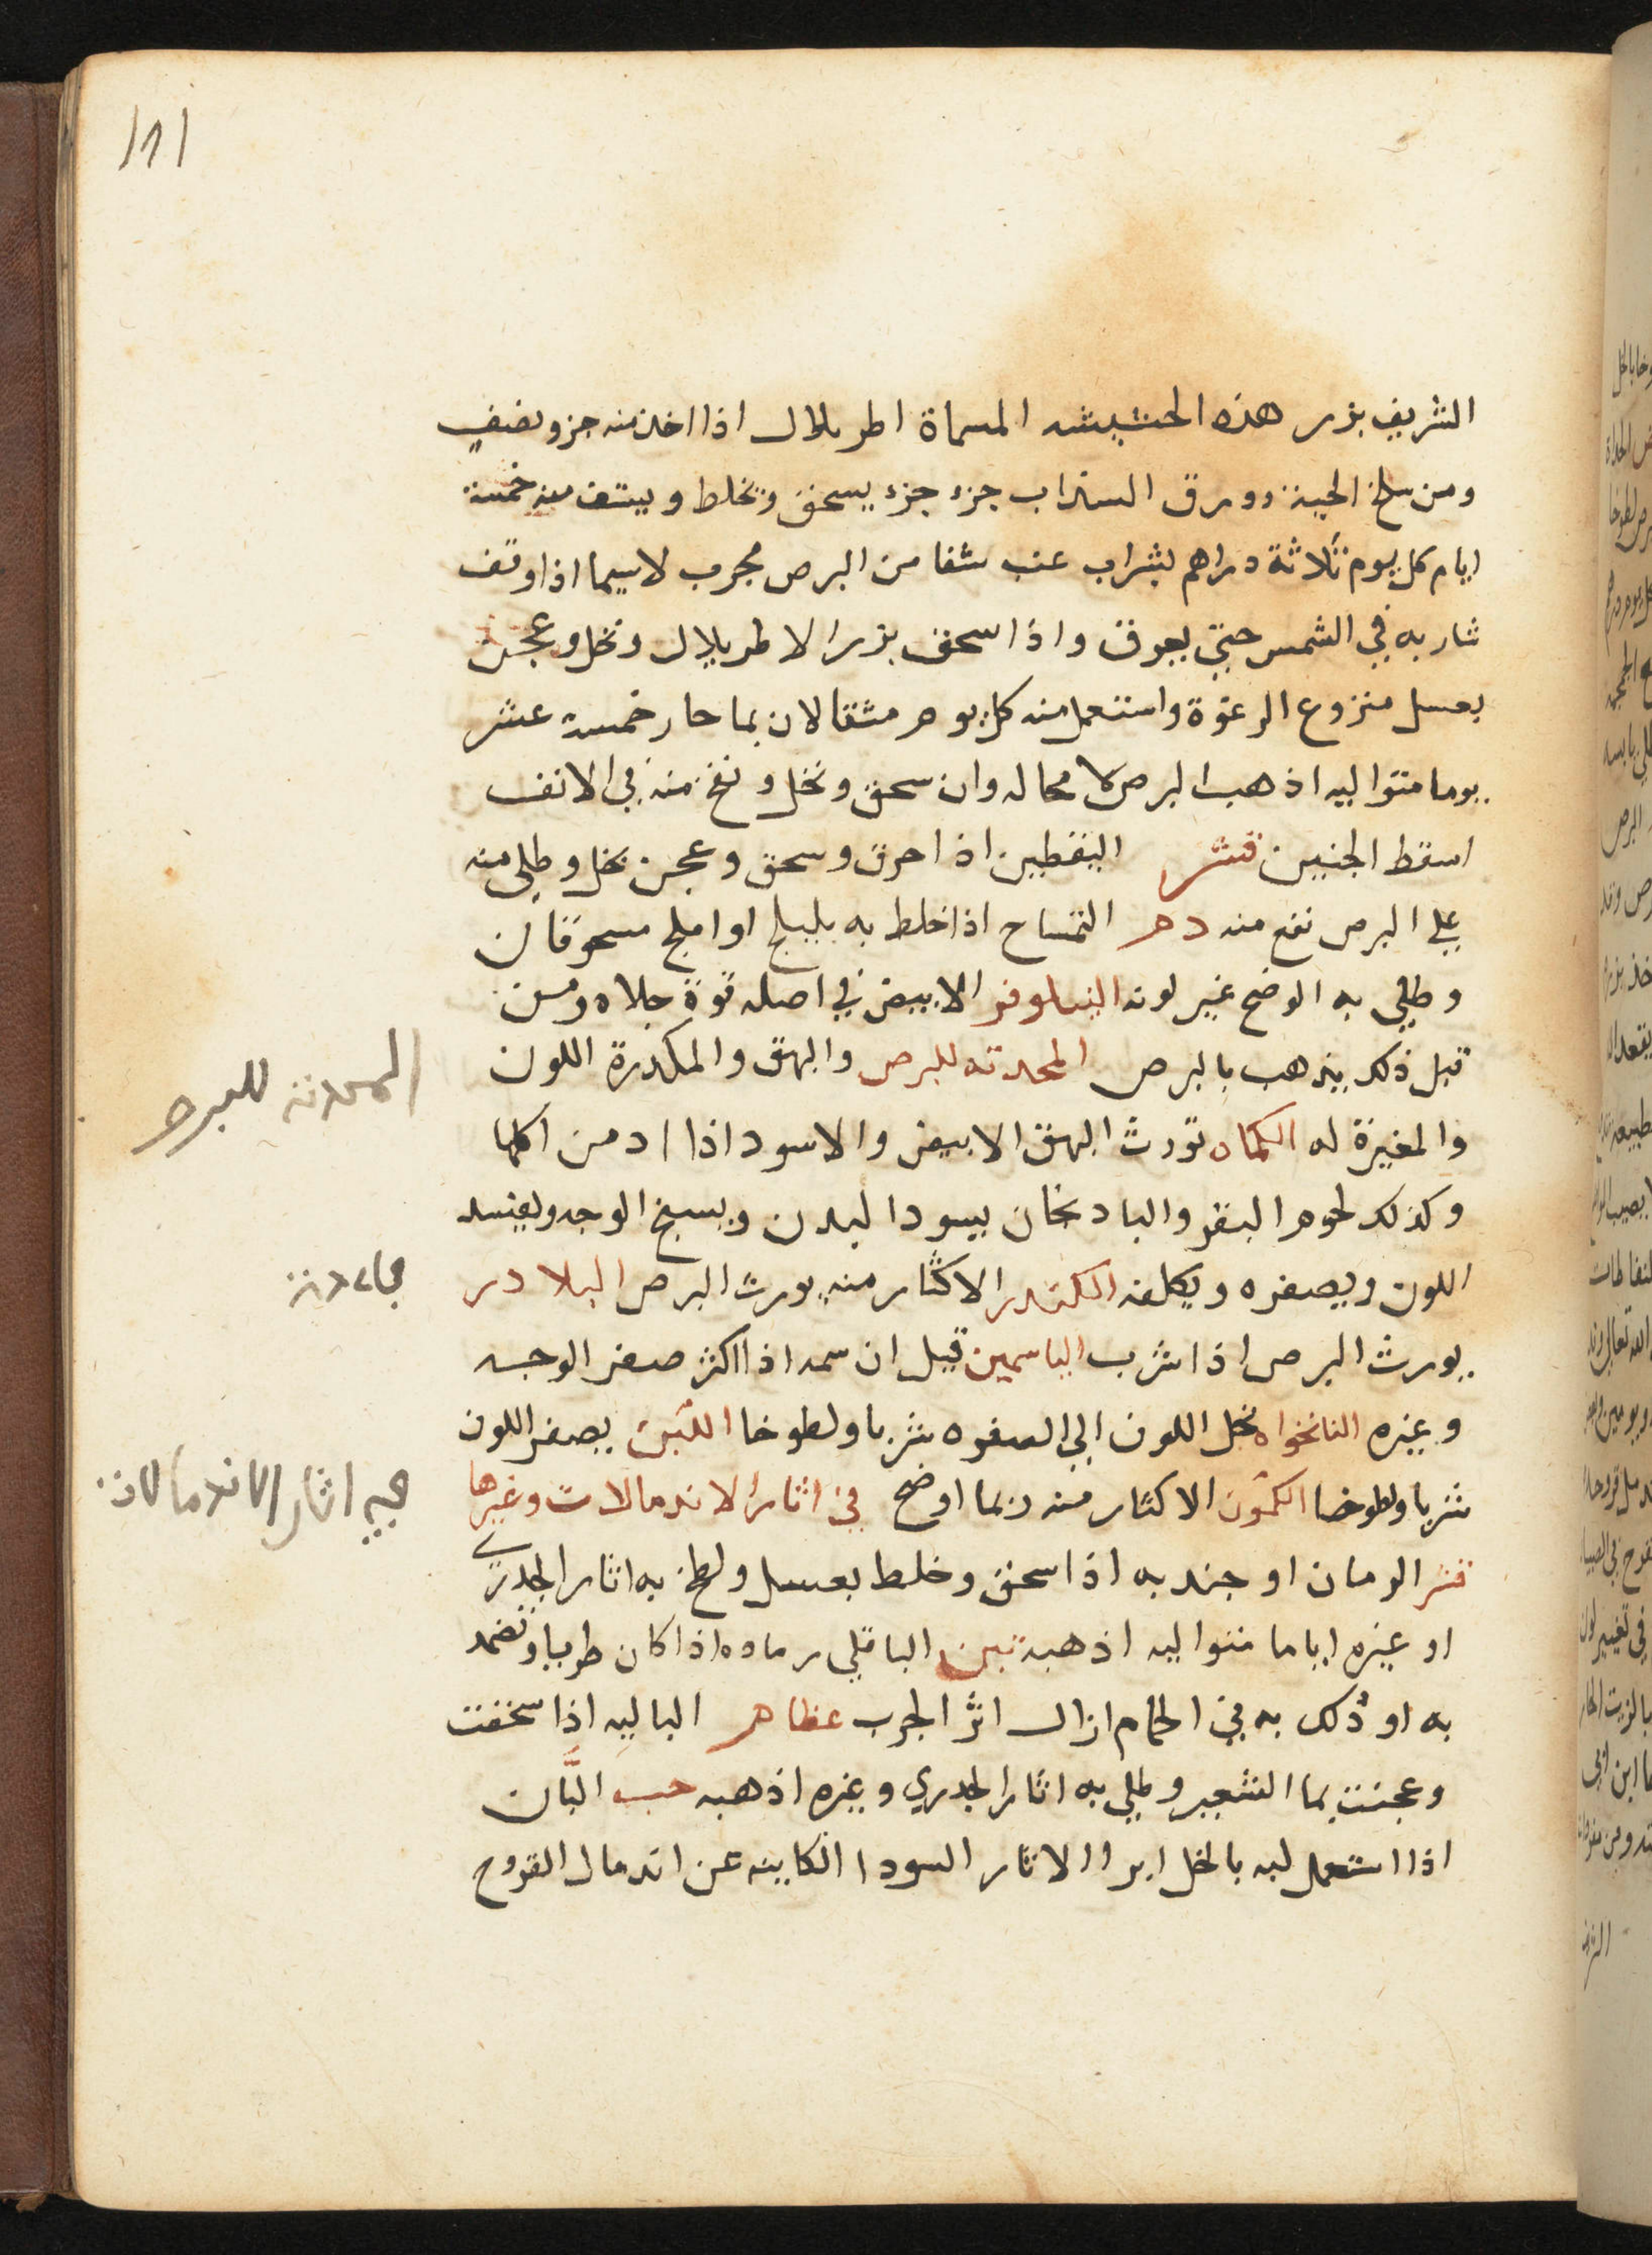 111
الشريف بزر هذه الحشيشه المسماة اطريلال اذا اخذ منه جزو نصف
ومن سلخ الحية وورق السذاب جزء جزء يسحق وتخلط ويستف منه خمسة
ايام كل يوم ثلاثة دراهم بشراب عنب شفا من البرص مجرب لاسيما اذا وقف
شاربه في الشمس حتي يعرق واذا سحق بزر الاطريلال ونخل وعجن
بعسل منزوع الرغوة واستعمل منه كل يوم مثقالان بما حار خمسة عشر
يوما متواليه اذهب البرص لا محاله وان سحق ونخل ونفخ منه في الانف
اسقط الجنين قشر اليقطين اذا احرق وسحق وعجن بخل وطلي منه
علي البرص نفع منه دم التمساح اذا خلط به بليلج او املج مسحوقان
وطلي به الوضح غير لونه النيلوفر الابيض في اصله قوة جلاه ومن
قبل ذلك يذهب بالبرص المحدثه للبرص والبهق والمكدرة اللون
والمغيرة له الكماه تورث البهق الابيض والاسود اذا ادمن اكلها
وكذلك لحوم البقر والبادنجان يسود البدن ويسمج الوجه ويفسد
اللون ويصفره ويكلفه الكندر الاكثار منه يورث البرص البلادر
يورث البرص اذا شرب الياسمين قيل ان سمه اذا اكثر صفر الوجه
وغيره النانخواه نحل اللون الي الصفره شربا ولطوخا اللبن يصفر اللون
شربا ولطوخا الكمون الاكثار منه ربما اوضح في اثار الاندمالات وغيرها
قشر الرمان او جنديه اذا سحق وخلط بعسل ولطخ به اثار الجدري
او غيره اياما متواليه اذهبه تبن الباقلي رماده اذا كان طريا وتضمد
به او دلك به في الحمام ازال اثر الجرب عظام الباليه اذا سحقت
وعجنت بما الشعير وطلي به اثار الجدري وغيره اذهبه حب البان
اذا استعمل لبه بالخل ابرا الاثار السودا الكاينه عن اندمال القروح
المحدثه للبرص
فيه اثار الاندمالات